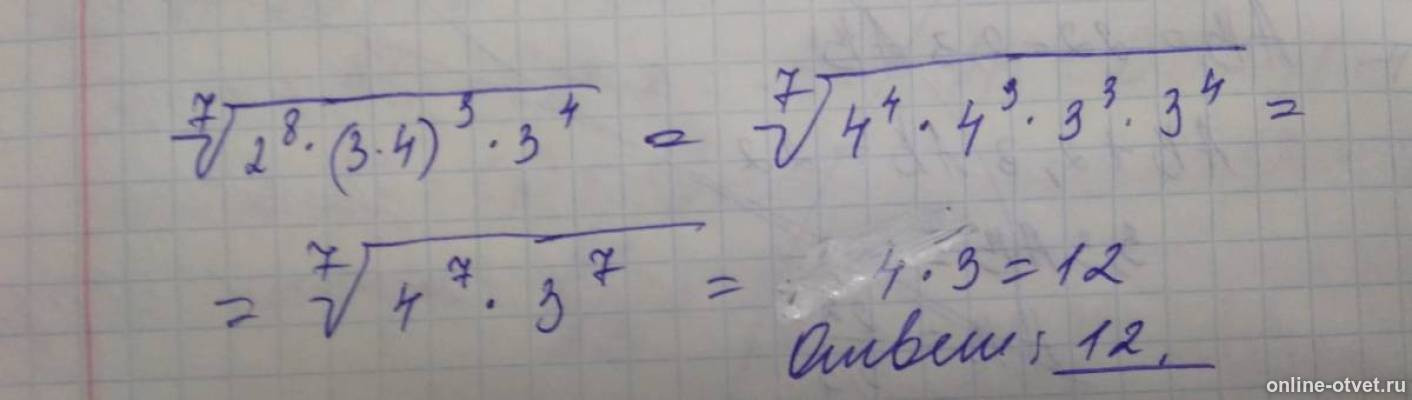 ⁷√(2⁸·(3·4)³·3⁴) = ⁷√(4⁴·4³·3³·3⁴) =
= ⁷√(4⁷·3⁷) = 4·3=12
Ответ: 12.
online-otvet.ru